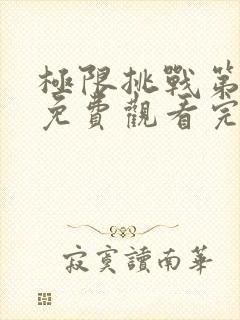 極限挑戰第
免費觀看完
寂寞讀南華